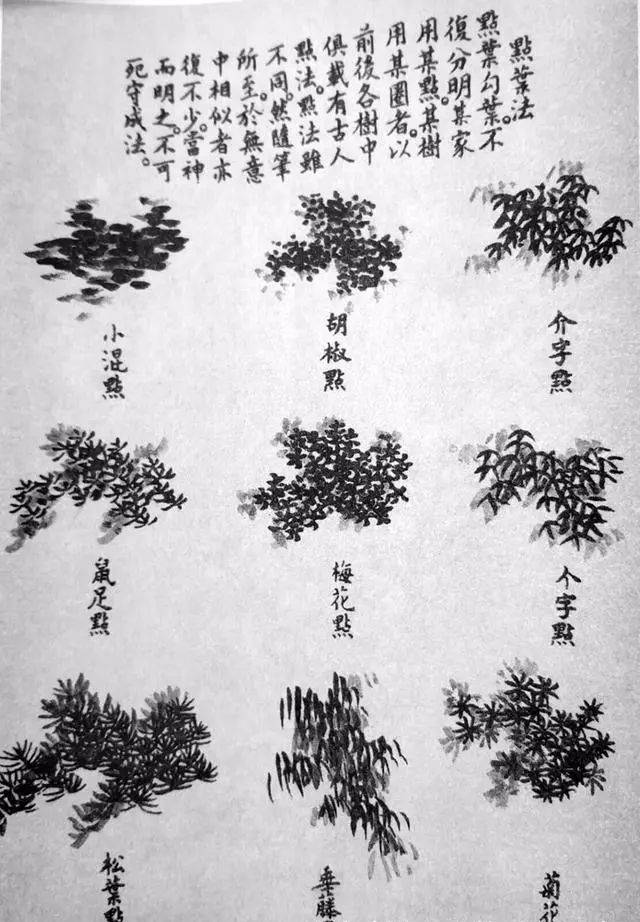 點葉法
點葉勾葉。不
復分明某家
用某點。某樹
用某圈者。以
前後各樹中
俱載有古人
點法。點法雖
不同。然隨筆
所至。於無意
中相似者亦
復不少。當神
而明之。不可
死守成法。
介字點
胡椒點
小混點
个字點
梅花點
鼠足點
菊花
垂藤
松葉點